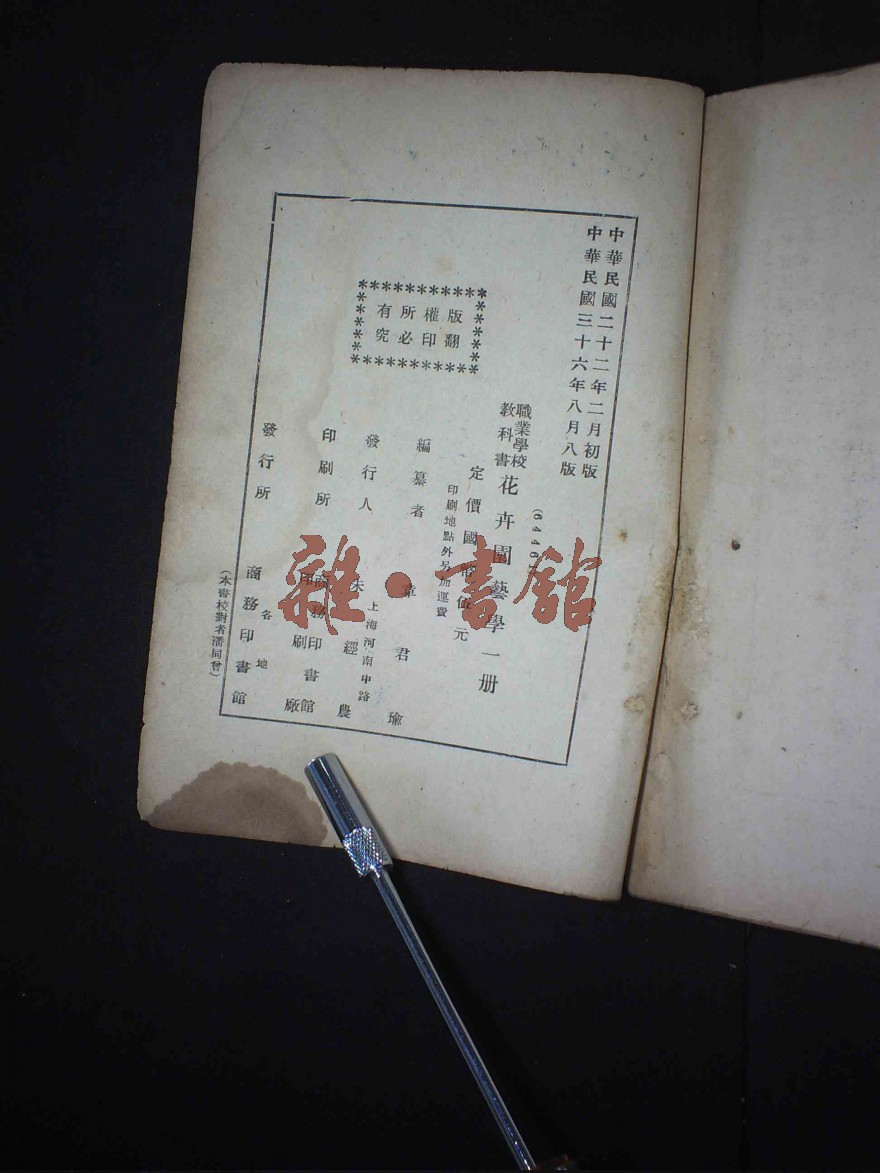 中華民國二十二年二月初版
中華民國三十六年八月八版
(6446
職業學校
教科書
花卉園藝學一册
定價國幣伍元
印刷地點外另加運費
版權所有
翻印必究
編纂者 章君瑜
發行人 朱經農
上海河南中路
印刷所 商務印書館
印刷廠
發行所 商務印書館
各地
(本書校對者潘同曾)
雜·書館